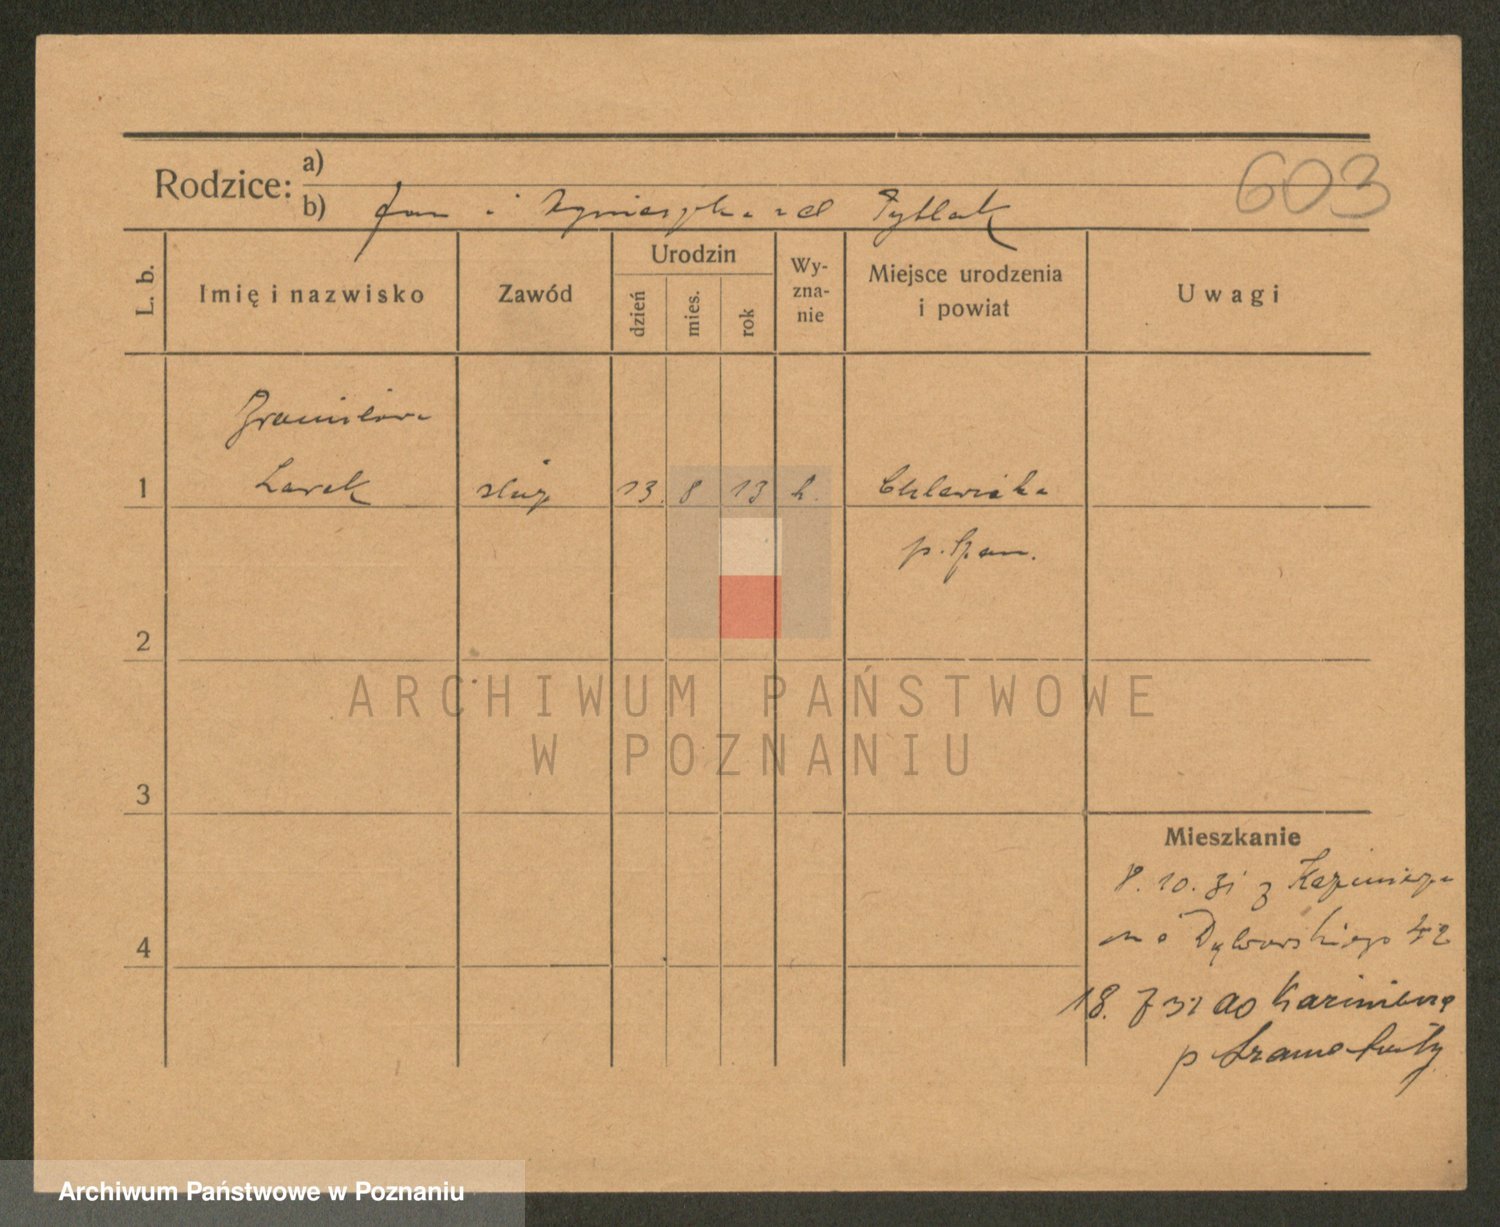 603
Rodzice: a)
b) Jan i Agnieszka zd
L. b.
Imię i nazwisko
Zawód
Urodzin
dzień
mies.
rok
Wy-
zna-
nie
Miejsce urodzenia
i powiat
Uwagi
Bronisława
1 Larek służ 13. 8 13 k.
p. Szam.
2
ARCHIWUM PAŃSTWOWE
W POZNANIU
3
Mieszkanie
8. 10. 31 z Kazimierza
42
4
18. 7 32 do Kazimierza
p Szamotuły
Archiwum Państwowe w Poznaniu